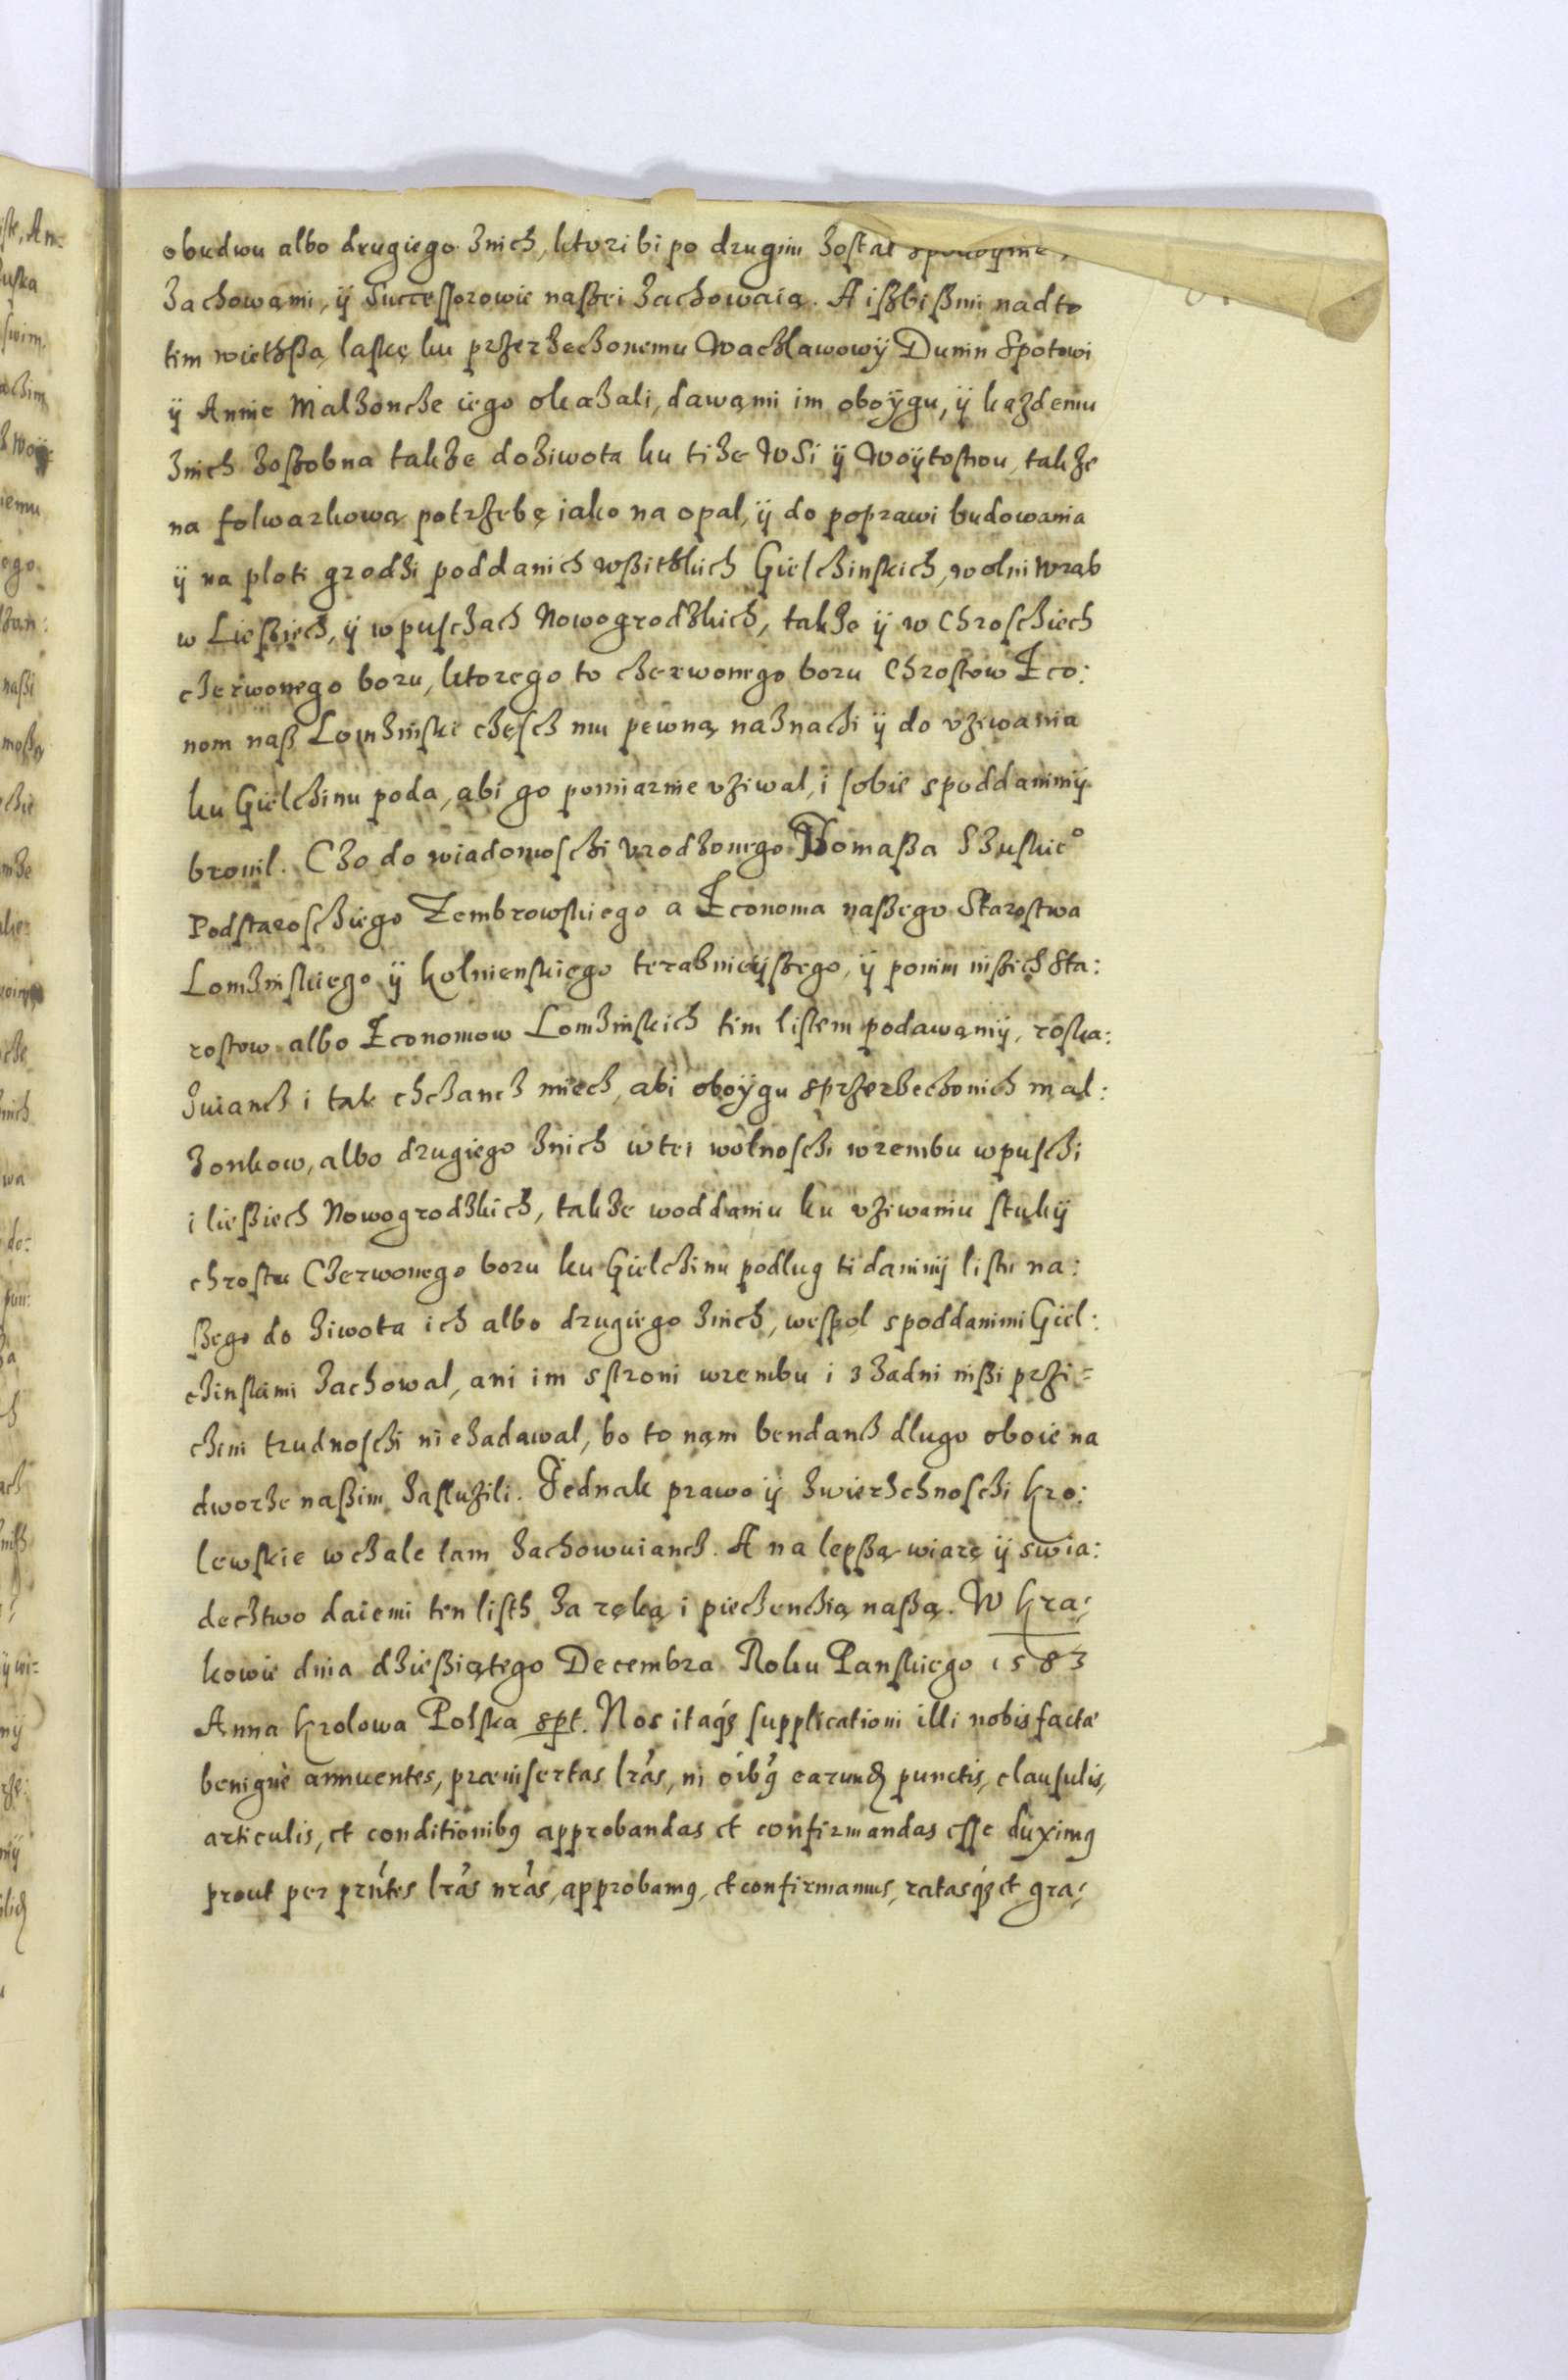 obudwu albo drugiego znich, ktori bi po drugim zostal spokoynie,
zachowami, ÿ Successorowie naßzei zachowaią. A ißbißmi nadto
tim wiethßą laskę ku przerzeczonemu Waczlawowÿ Dunin Spotowi
ÿ Annie Malzoncze iego okazali, dawąmi im oboÿgu, ÿ każdemu
znich zoßobna takze doziwota ku tize Wsi ÿ Woÿtostwu, takze
na folwarkową potrzebę iako na opal, ÿ do poprawi budowania
ÿ na ploti grodzi poddanich wßitzkich Gielczinskich, wolni wrąb
w Ließiech, ÿ w pusczach Nowogrodzkich, takze ÿ w Chrosciech
czerwonego boru, ktorego to czerwonego boru Chrostow Eco:
nom naß Lomzinski częscz mu pewną naznaczi ÿ do vziwania
ku Gielczinu poda, abi go pomiarnie vziwal, i sobie spoddanimÿ
bronil. Czo do wiadomosczi Vrodzonego Tomaßa Szuskie°
Podstarosciego Zembrowskiego a Economa naßego Starostwa
Lomzinskiego ÿ kolnienskiego teraznieÿßego, ÿ ponim nißich Sta:
rostow albo Economow Lomzinskich tim listem podawąmÿ, roska:
zuiancz i tak chczancz miecz, abi oboÿgu sprzerzeczonich mal:
zonkow, albo drugiego znich w tei wolnosczi wrembu w pusczi
i ließiech Nowogrodzkich, takze woddaniu ku vziwaniu stukÿ
chrostu Czerwonego boru ku Gielczinu podlug ti danimÿ listu na:
ßego do ziwota ich albo drugiego znich, wespol spoddanimi Giel:
czinskimi zachowal, ani im sstroni wrembu i z zadni nißi przi=
czini trudnosczi niezadawal, bo to nąm bendancz dlugo oboie na
dworze naßim zasluzili. Jednak prawo ÿ zwierzchnosczi kro:
lewskie wczale tam zachowuiancz. A na lepßą wiarę ÿ swia:
decztwo daiemi ten listh za ręką i pieczenczią naßą. W kra:
kowie dnia dzießiątego Decembra Roku Panskiego 1583
Anna krolowa Polska spt. Nos itaqꝫ supplicationi illi nobis factæ
benignè annuentes, præinsertas lrás, in oíbꝰ earundꝫ punctis, clausulis,
articulis, et conditionibꝰ approbandas et confirmandas esse duximꝰ
prout per prńtes lrás nrás, approbamꝰ, et confirmamus, ratasqꝫ et gra: